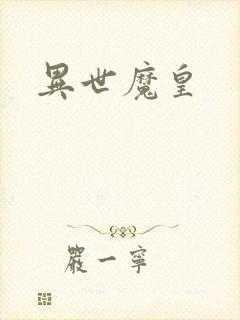 異世魔皇
嚴一寧